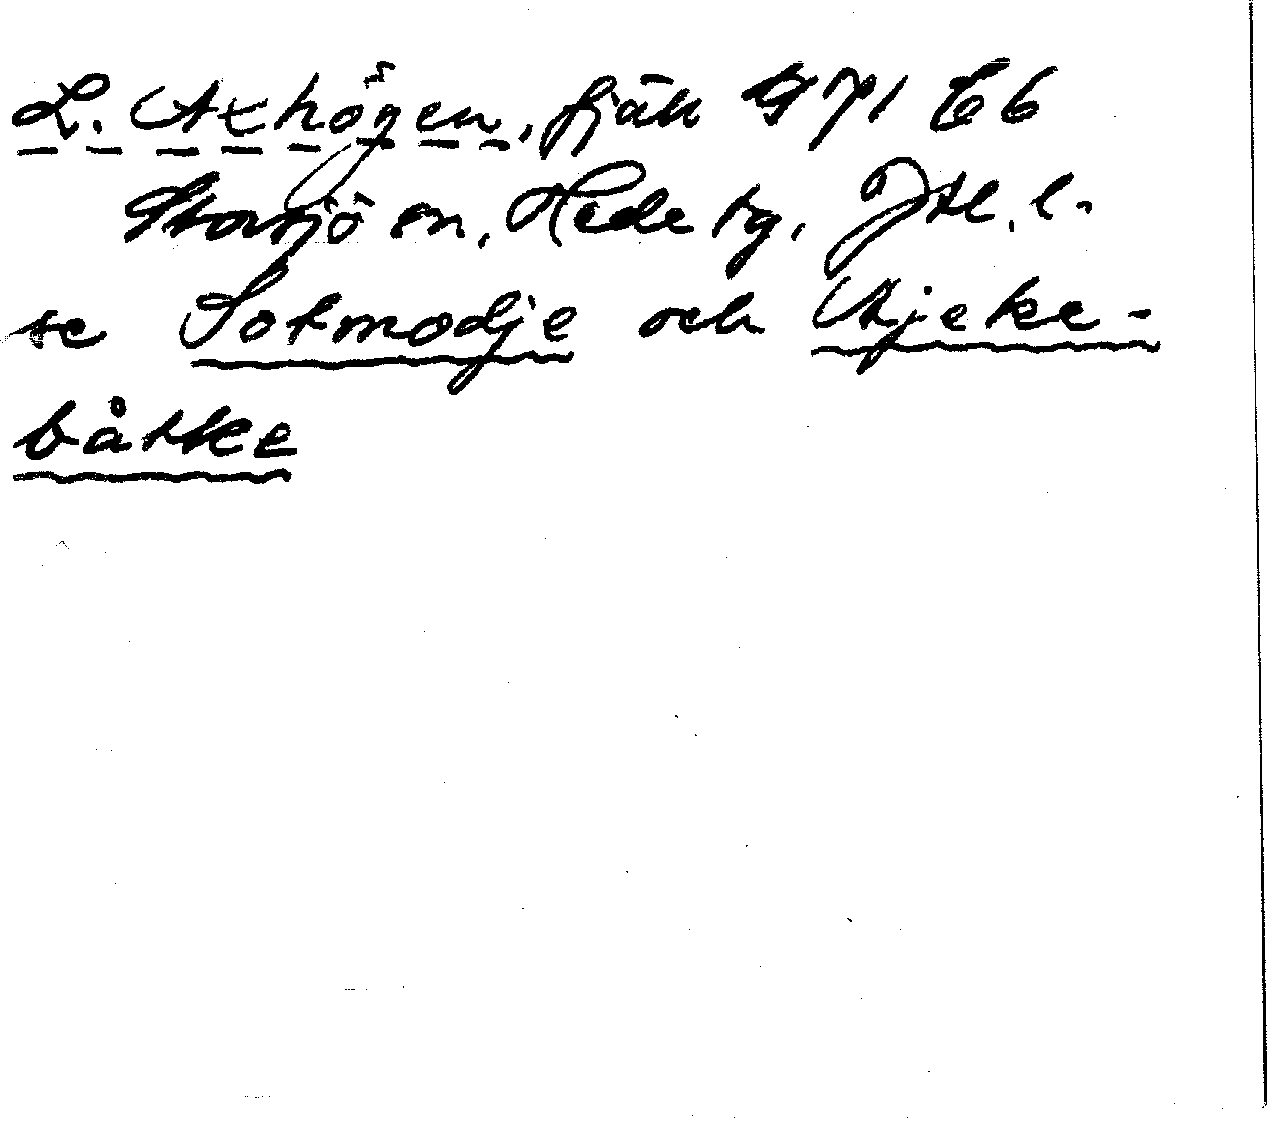 L. Axhögen, fjäll 971 E6
Storsjö sn, Hede tg, Jtl. l.
se Sotmodje och Ajeke-
båtke